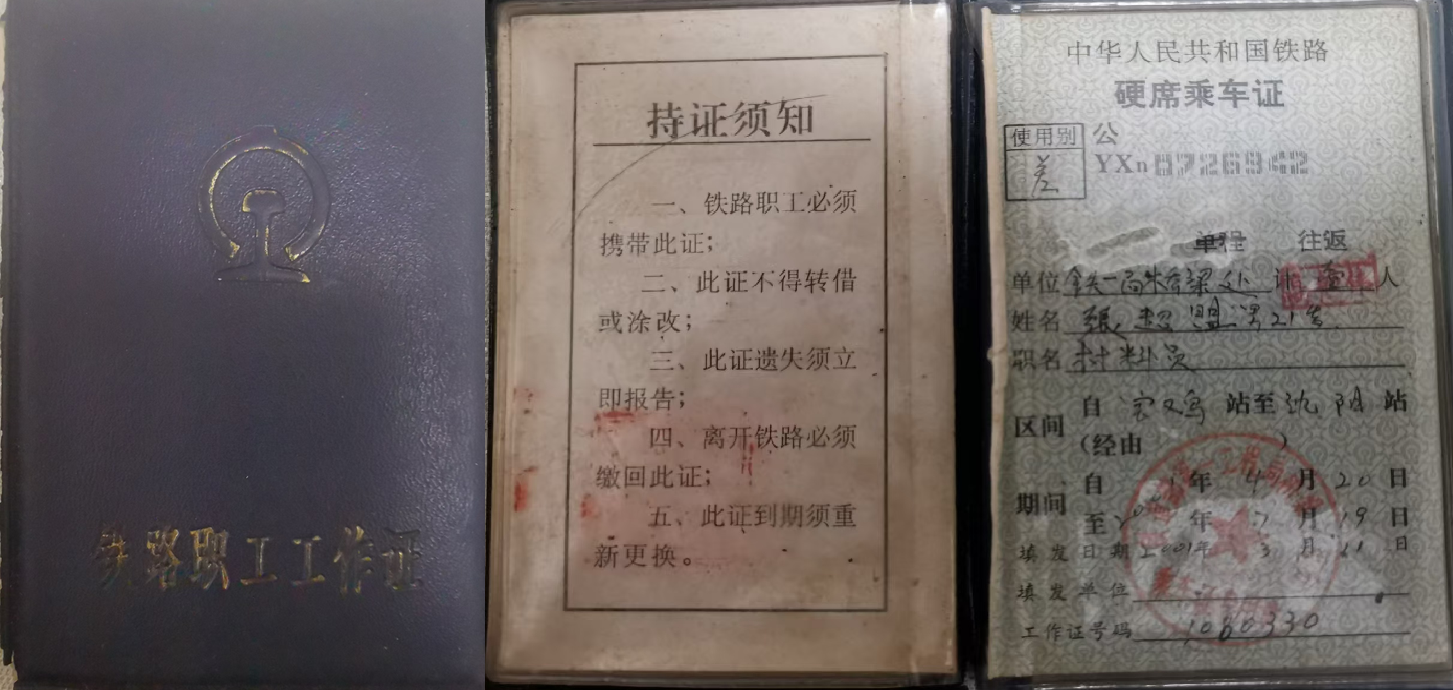 铁路职工工作证
持证须知
一、铁路职工必须
携带此证；
二、此证不得转借
或涂改；
三、此证遗失须立
即报告；
四、离开铁路必须
缴回此证；
五、此证到期须重
新更换。
中华人民共和国铁路
硬席乘车证
使用别 公
差 YXn 0726942
单程 往返
单位 铁一局材 处 计 壹 人
姓名 张超盟 男 21岁
职名 材料员
区间 自 宗 站至 沈阳 站
(经由 )
期间 自 年 4 月 20 日
至 年 7 月 19 日
填发日期 2001年 3 月 21 日
填发单位
工作证号码 1080330